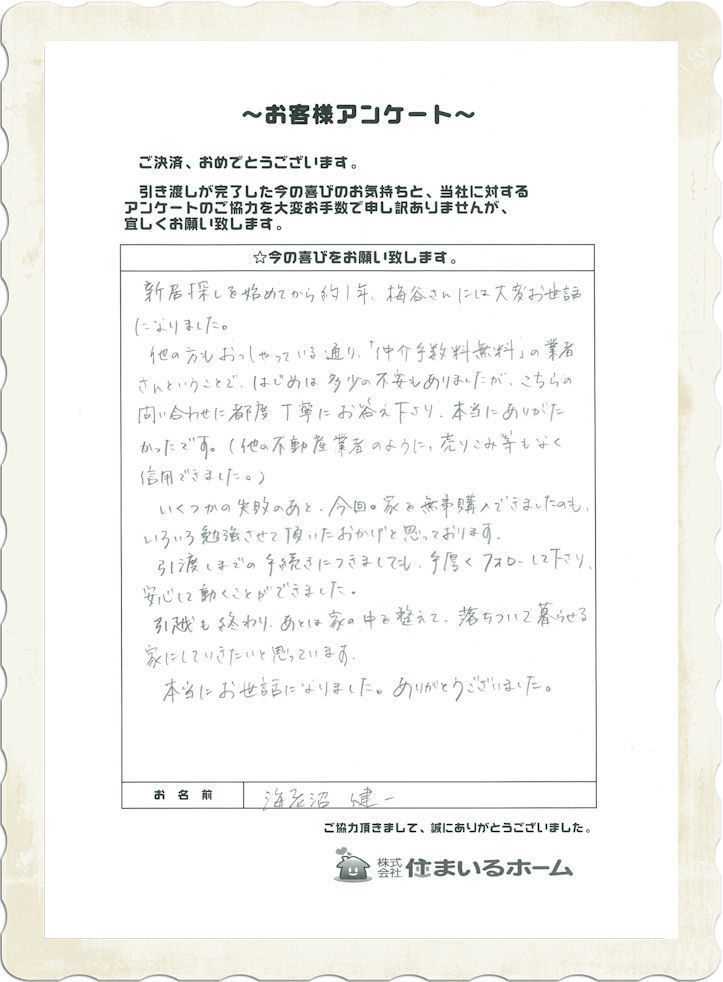 ～お客様アンケート～
ご決済、おめでとうございます。
引き渡しが完了した今の喜びのお気持ちと、当社に対する
アンケートのご協力を大変お手数で申し訳ありませんが、
宜しくお願い致します。
☆今の喜びをお願い致します。
新居探しを始めてから約1年、梅谷さんには大変お世話
になりました。
他の方もおっしゃっている通り、「仲介手数料無料」の業者
さんということで、はじめは多少の不安もありましたが、こちらの
問い合わせに都度丁寧にお答え下さり、本当にありがた
かったです。(他の不動産業者のように、売りこみ等もなく
信用できました。)
いくつかの失敗のあと、今回の家を無事購入できましたのも、
いろいろ勉強させて頂いたおかげと思っております。
引渡しまでの手続きにつきましても、手厚くフォローして下さり、
安心して動くことができました。
引越も終わり、あとは家の中を整えて、落ちついて暮らせる
家にしていきたいと思っています。
本当にお世話になりました。ありがとうございました。
お名前
海老沼 健一
ご協力頂きまして、誠にありがとうございました。
株式会社 住まいるホーム